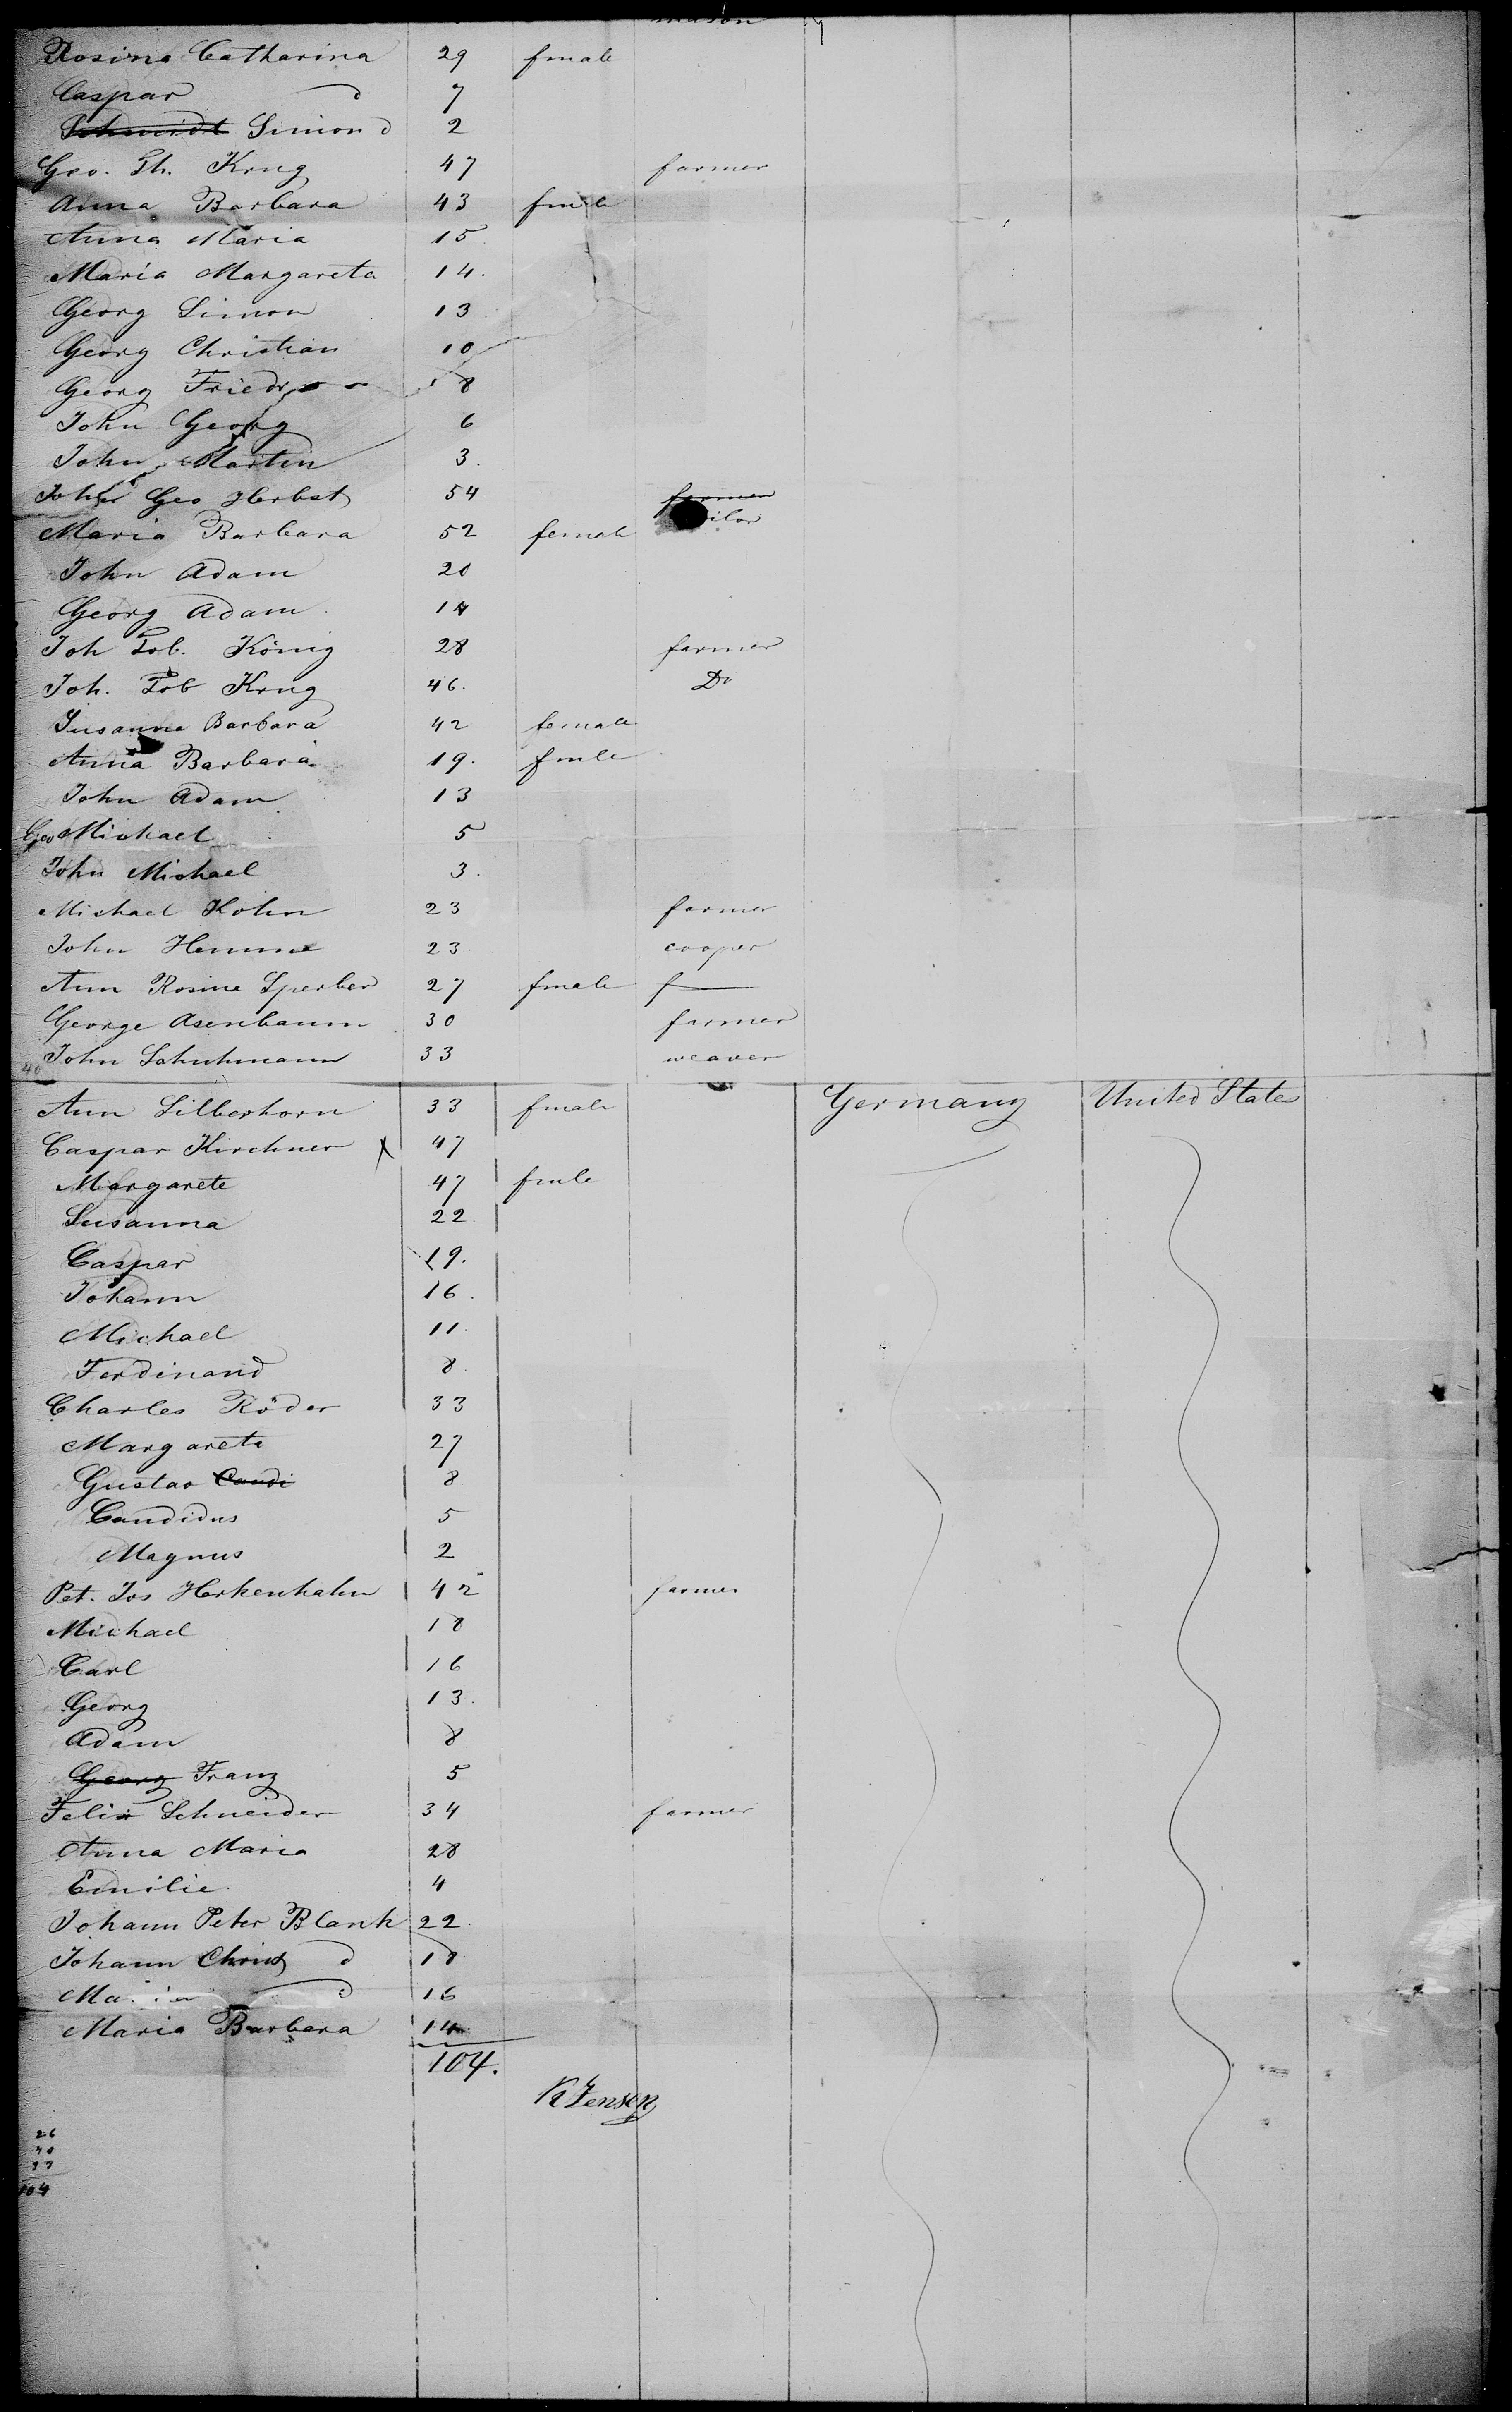 mason
Rosina Catharina 29 fmale
Caspar d 7
Schmidt Simon d 2
Geo. Th. Krug 47 farmer
Anna Barbara 43 fmle
Anna Maria 15
Maria Margareta 14.
Georg Simon 13
Georg Christian 10
Georg Friedr 8
John Georg 6
John Martin 3.
John Geo Herbst 54 farmer
Maria Barbara 52 female
John Adam 20
Georg Adam 14
Joh Tob. König 28 farmer
Joh. Tob Krug 46. Do
Susanna Barbara 42 female
Anna Barbara 19. fmle
John Adam 13
Geo Michael 5
John Michael 3.
Michael Kohn 23 farmer
John Hemme 23 cooper
Ann Rosine Sperber 27 fmale f
George Asenbaum 30 farmer
40 John Schuhmann 33 weaver
Ann Silberhorn 33 fmale Germany United States
Caspar Kirchner x 47
Margarete 47 fmle
Susanna 22
Caspar 19.
Johann 16.
Michael 11.
Ferdinand 8.
Charles Röder 33
Margareta 27
Gustav Candi 8
Candidus 5
Magnus 2
Pet. Jos Herkenhahn 42 farmer
Michael 18
Carl 16
Georg 13.
Adam 8
Georg Franz 5
Felix Schneider 34 farmer
Anna Maria 28
Emilie 4
Johann Peter Blank 22.
Johann Christ d 18
Maria d 16
Maria Barbara 14
104.
K Jensen
26
40
104